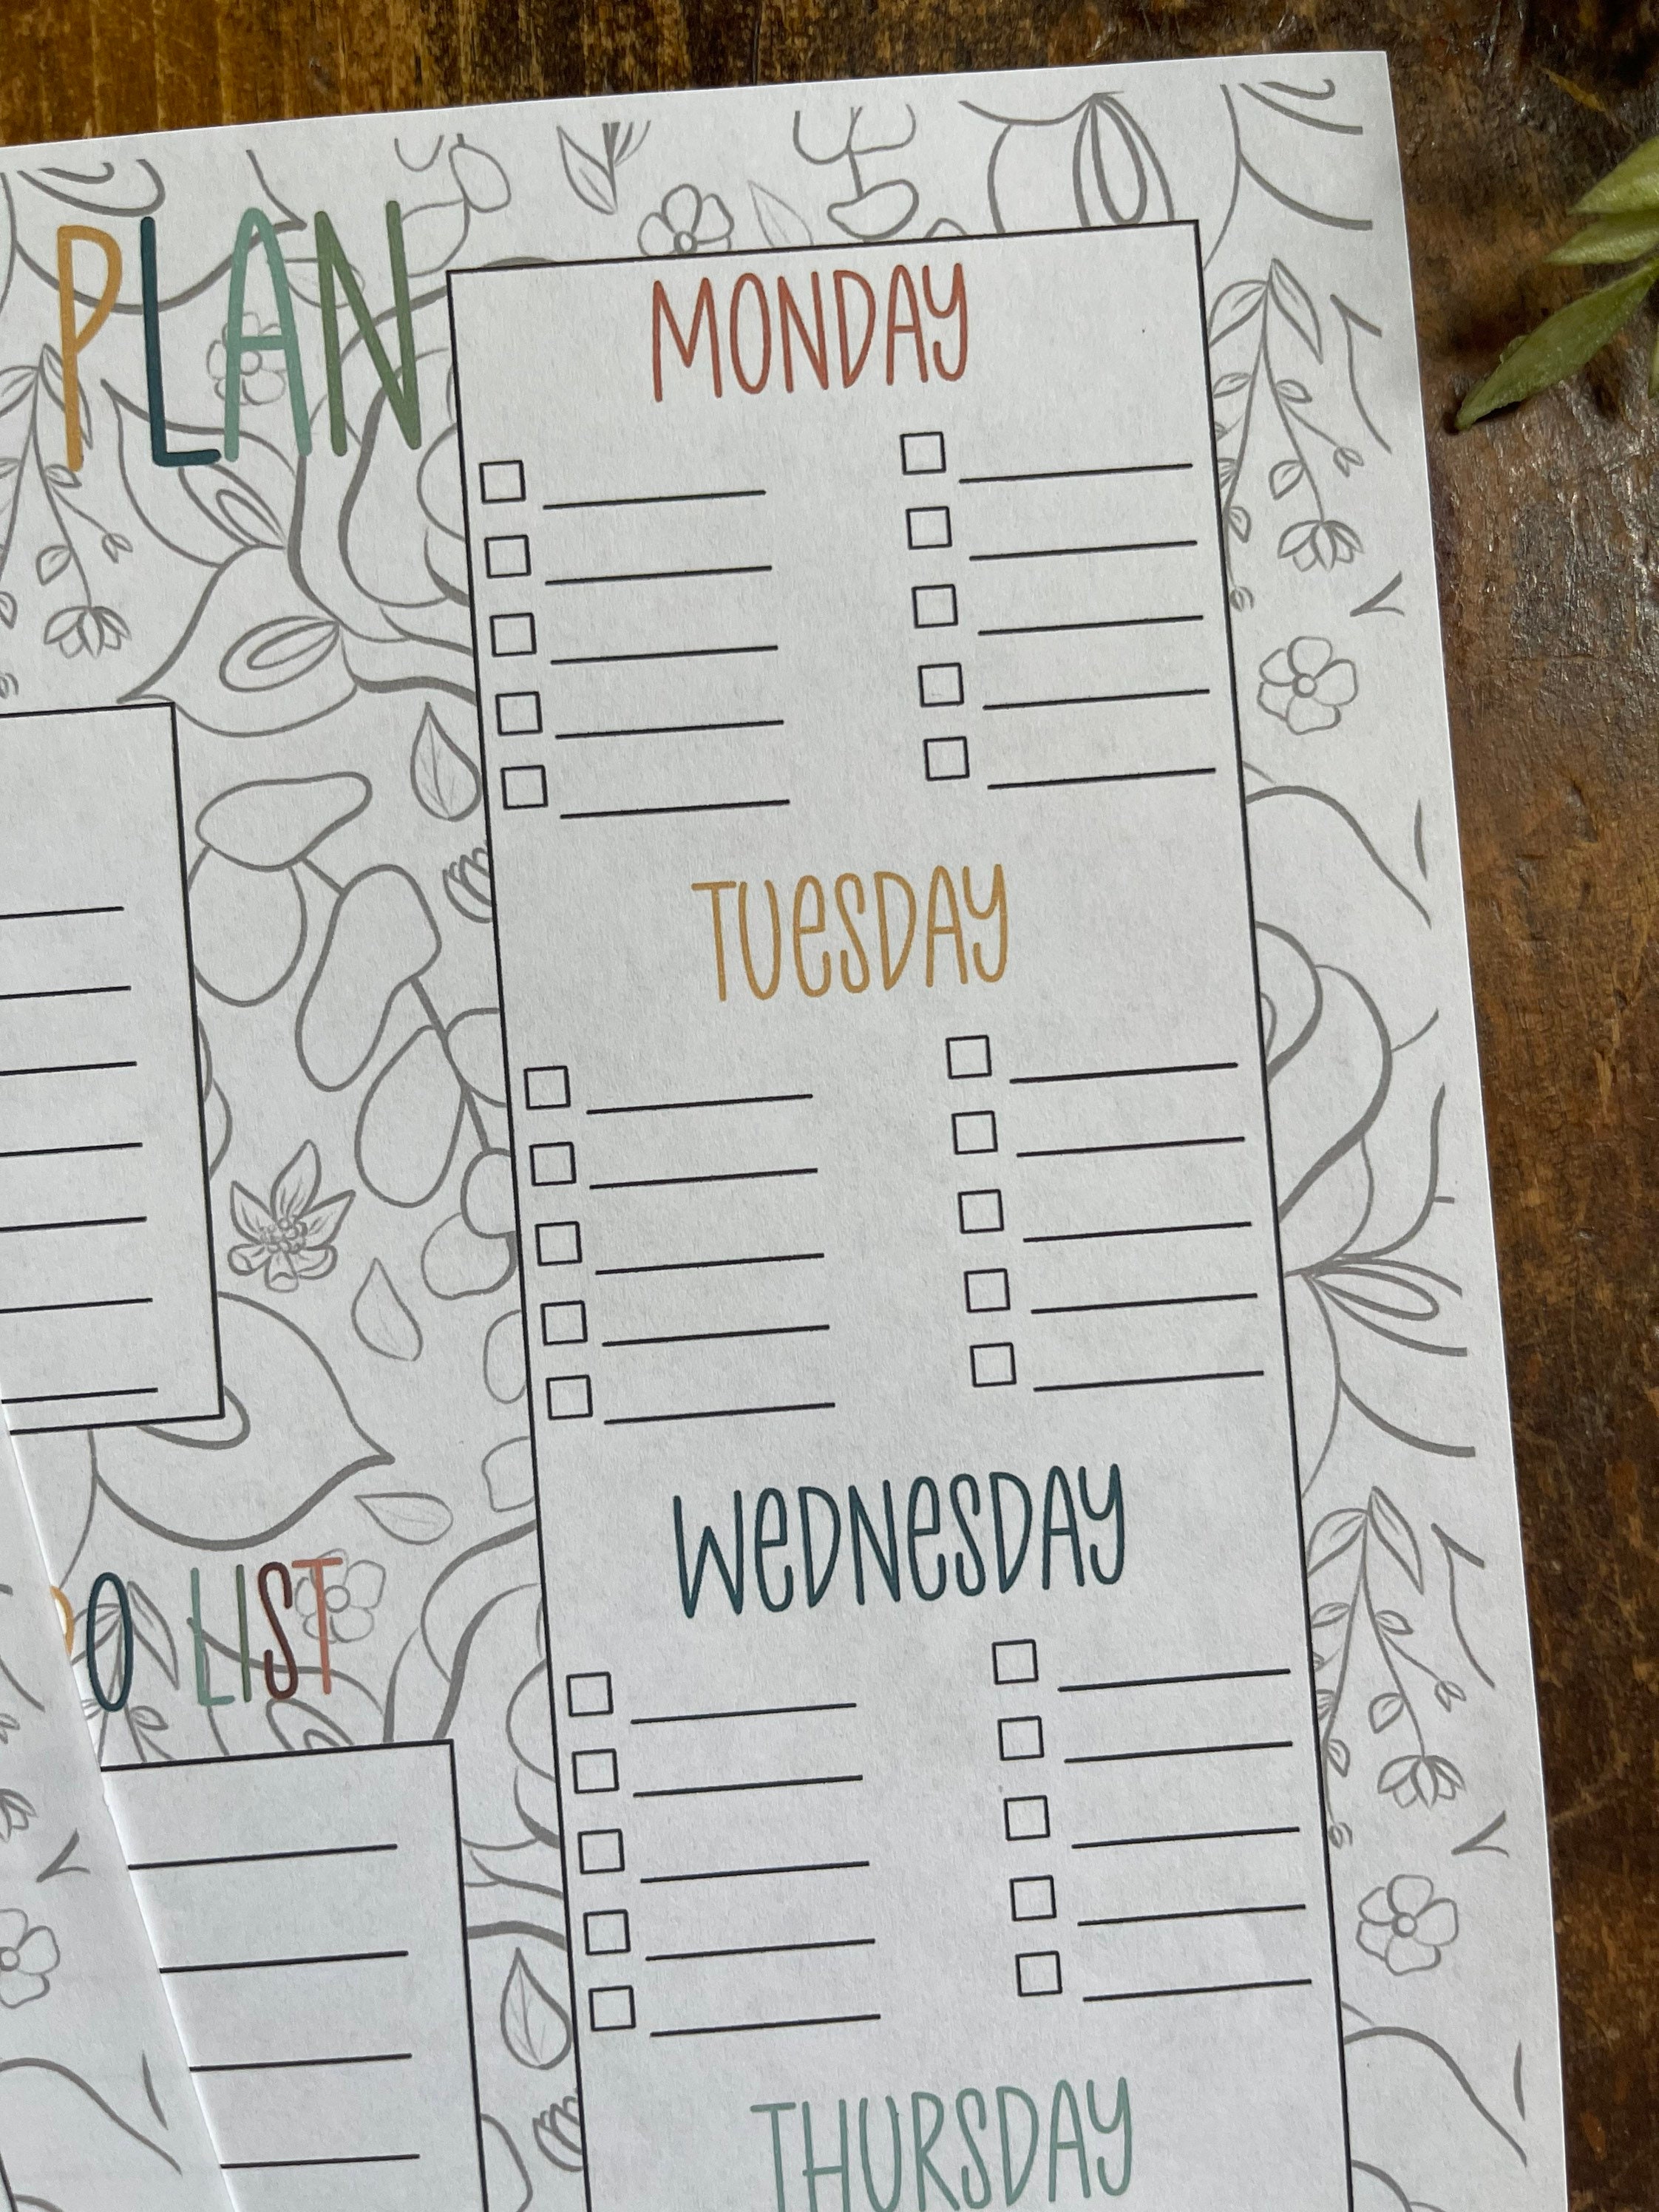 PLAN
MONDAY
TUeSDAY
WeDNeSDAY
O LIST
THURSDAY